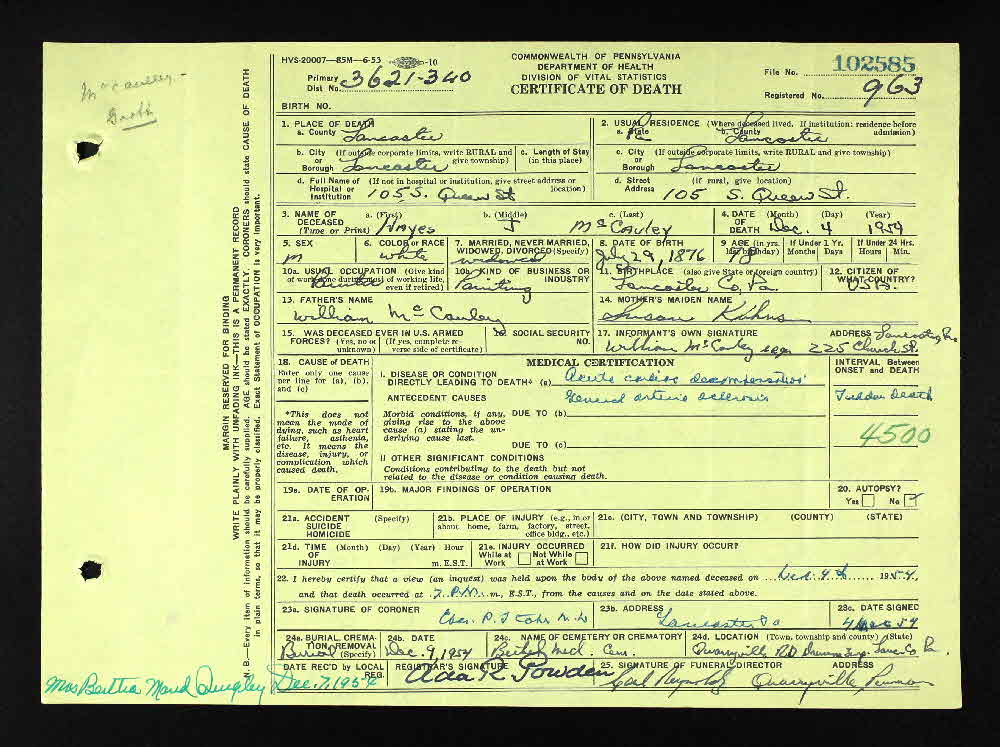 McCauley -
HVS-20007—85M—6-53 -10
Primary Dist No. 3621-340
COMMONWEALTH OF PENNSYLVANIA
DEPARTMENT OF HEALTH
DIVISION OF VITAL STATISTICS
CERTIFICATE OF DEATH
File No. 102585
Registered No. 963
BIRTH NO.
MARGIN RESERVED FOR BINDING
WRITE PLAINLY WITH UNFADING INK—THIS IS A PERMANENT RECORD
N. B.—Every item of information should be carefully supplied. AGE should be stated EXACTLY. CORONERS should state CAUSE OF DEATH
in plain terms, so that it may be properly classified. Exact Statement of OCCUPATION is very important.
1. PLACE OF DEATH
a. County Lancaster
b. City (If outside corporate limits, write RURAL and give township)
or Borough Lancaster
c. Length of Stay (in this place)
d. Full Name of Hospital or Institution (If not in hospital or institution, give street address or location)
105 S. Queen St
2. USUAL RESIDENCE (Where deceased lived. If institution: residence before admission)
a. State Pa b. County Lancaster
c. City (If outside corporate limits, write RURAL and give township)
or Borough Lancaster
d. Street Address (If rural, give location)
105 S. Queen St.
3. NAME OF DECEASED (Type or Print)
a. (First) Hayes
b. (Middle) J
c. (Last) McCauley
4. DATE OF DEATH (Month) (Day) (Year)
Dec. 4 1954
5. SEX
m
6. COLOR or RACE
white
7. MARRIED, NEVER MARRIED, WIDOWED, DIVORCED (Specify)
widowed
8. DATE OF BIRTH
July 29, 1876
9 AGE (in yrs. last birthday) If Under 1 Yr. Months Days If Under 24 Hrs. Hours Min.
78
10a. USUAL OCCUPATION (Give kind of work done during most of working life, even if retired)
Painter
10b. KIND OF BUSINESS OR INDUSTRY
Painting
11. BIRTHPLACE (also give State or foreign country)
Lancaster Co, Pa.
12. CITIZEN OF WHAT COUNTRY?
USA.
13. FATHER'S NAME
William McCauley
14. MOTHER'S MAIDEN NAME
Susan Kuhns
15. WAS DECEASED EVER IN U.S. ARMED FORCES? (Yes, no or unknown) (If yes, complete reverse side of certificate)
16 SOCIAL SECURITY NO.
17. INFORMANT'S OWN SIGNATURE ADDRESS
William McCauley 225 Church St. Lancaster, Pa
18. CAUSE OF DEATH
Enter only one cause per line for (a), (b), and (c)
*This does not mean the mode of dying, such as heart failure, asthenia, etc. It means the disease, injury, or complication which caused death.
MEDICAL CERTIFICATION
INTERVAL Between ONSET and DEATH
I. DISEASE OR CONDITION
DIRECTLY LEADING TO DEATH* (a) Acute cardiac decompensation
ANTECEDENT CAUSES General arterio sclerosis
Sudden Death
Morbid conditions, if any, giving rise to the above cause (a) stating the underlying cause last.
DUE TO (b)
DUE TO (c)
4500
II OTHER SIGNIFICANT CONDITIONS
Conditions contributing to the death but not related to the disease or condition causing death.
19a. DATE OF OPERATION
19b. MAJOR FINDINGS OF OPERATION
20. AUTOPSY?
Yes No ✓
21a. ACCIDENT SUICIDE HOMICIDE (Specify)
21b. PLACE OF INJURY (e.g., in or about home, farm, factory, street, office bldg., etc.)
21c. (CITY, TOWN AND TOWNSHIP) (COUNTY) (STATE)
21d. TIME OF INJURY (Month) (Day) (Year) Hour m. E.S.T.
21e. INJURY OCCURRED While at Work Not While at Work
21f. HOW DID INJURY OCCUR?
22. I hereby certify that a view (an inquest) was held upon the body of the above named deceased on Dec. 4th 1954,
and that death occurred at 7 P.M. m., E.S.T., from the causes and on the date stated above.
23a. SIGNATURE OF CORONER
23b. ADDRESS
Lancaster Pa
23c. DATE SIGNED
4 Dec 54
24a. BURIAL, CREMATION, REMOVAL (Specify)
Burial
24b. DATE
Dec. 9, 1954
24c. NAME OF CEMETERY OR CREMATORY
Cem.
24d. LOCATION (Town, township and county) (State)
Quarryville RD Drumore Twp. Lanc. Co. Pa.
DATE REC'D by LOCAL REG.
Dec. 7, 1954
REGISTRAR'S SIGNATURE
Ada R. Powden
25. SIGNATURE OF FUNERAL DIRECTOR ADDRESS
Carl Reynolds Quarryville Penna
Mrs Bertha Maud Quigley